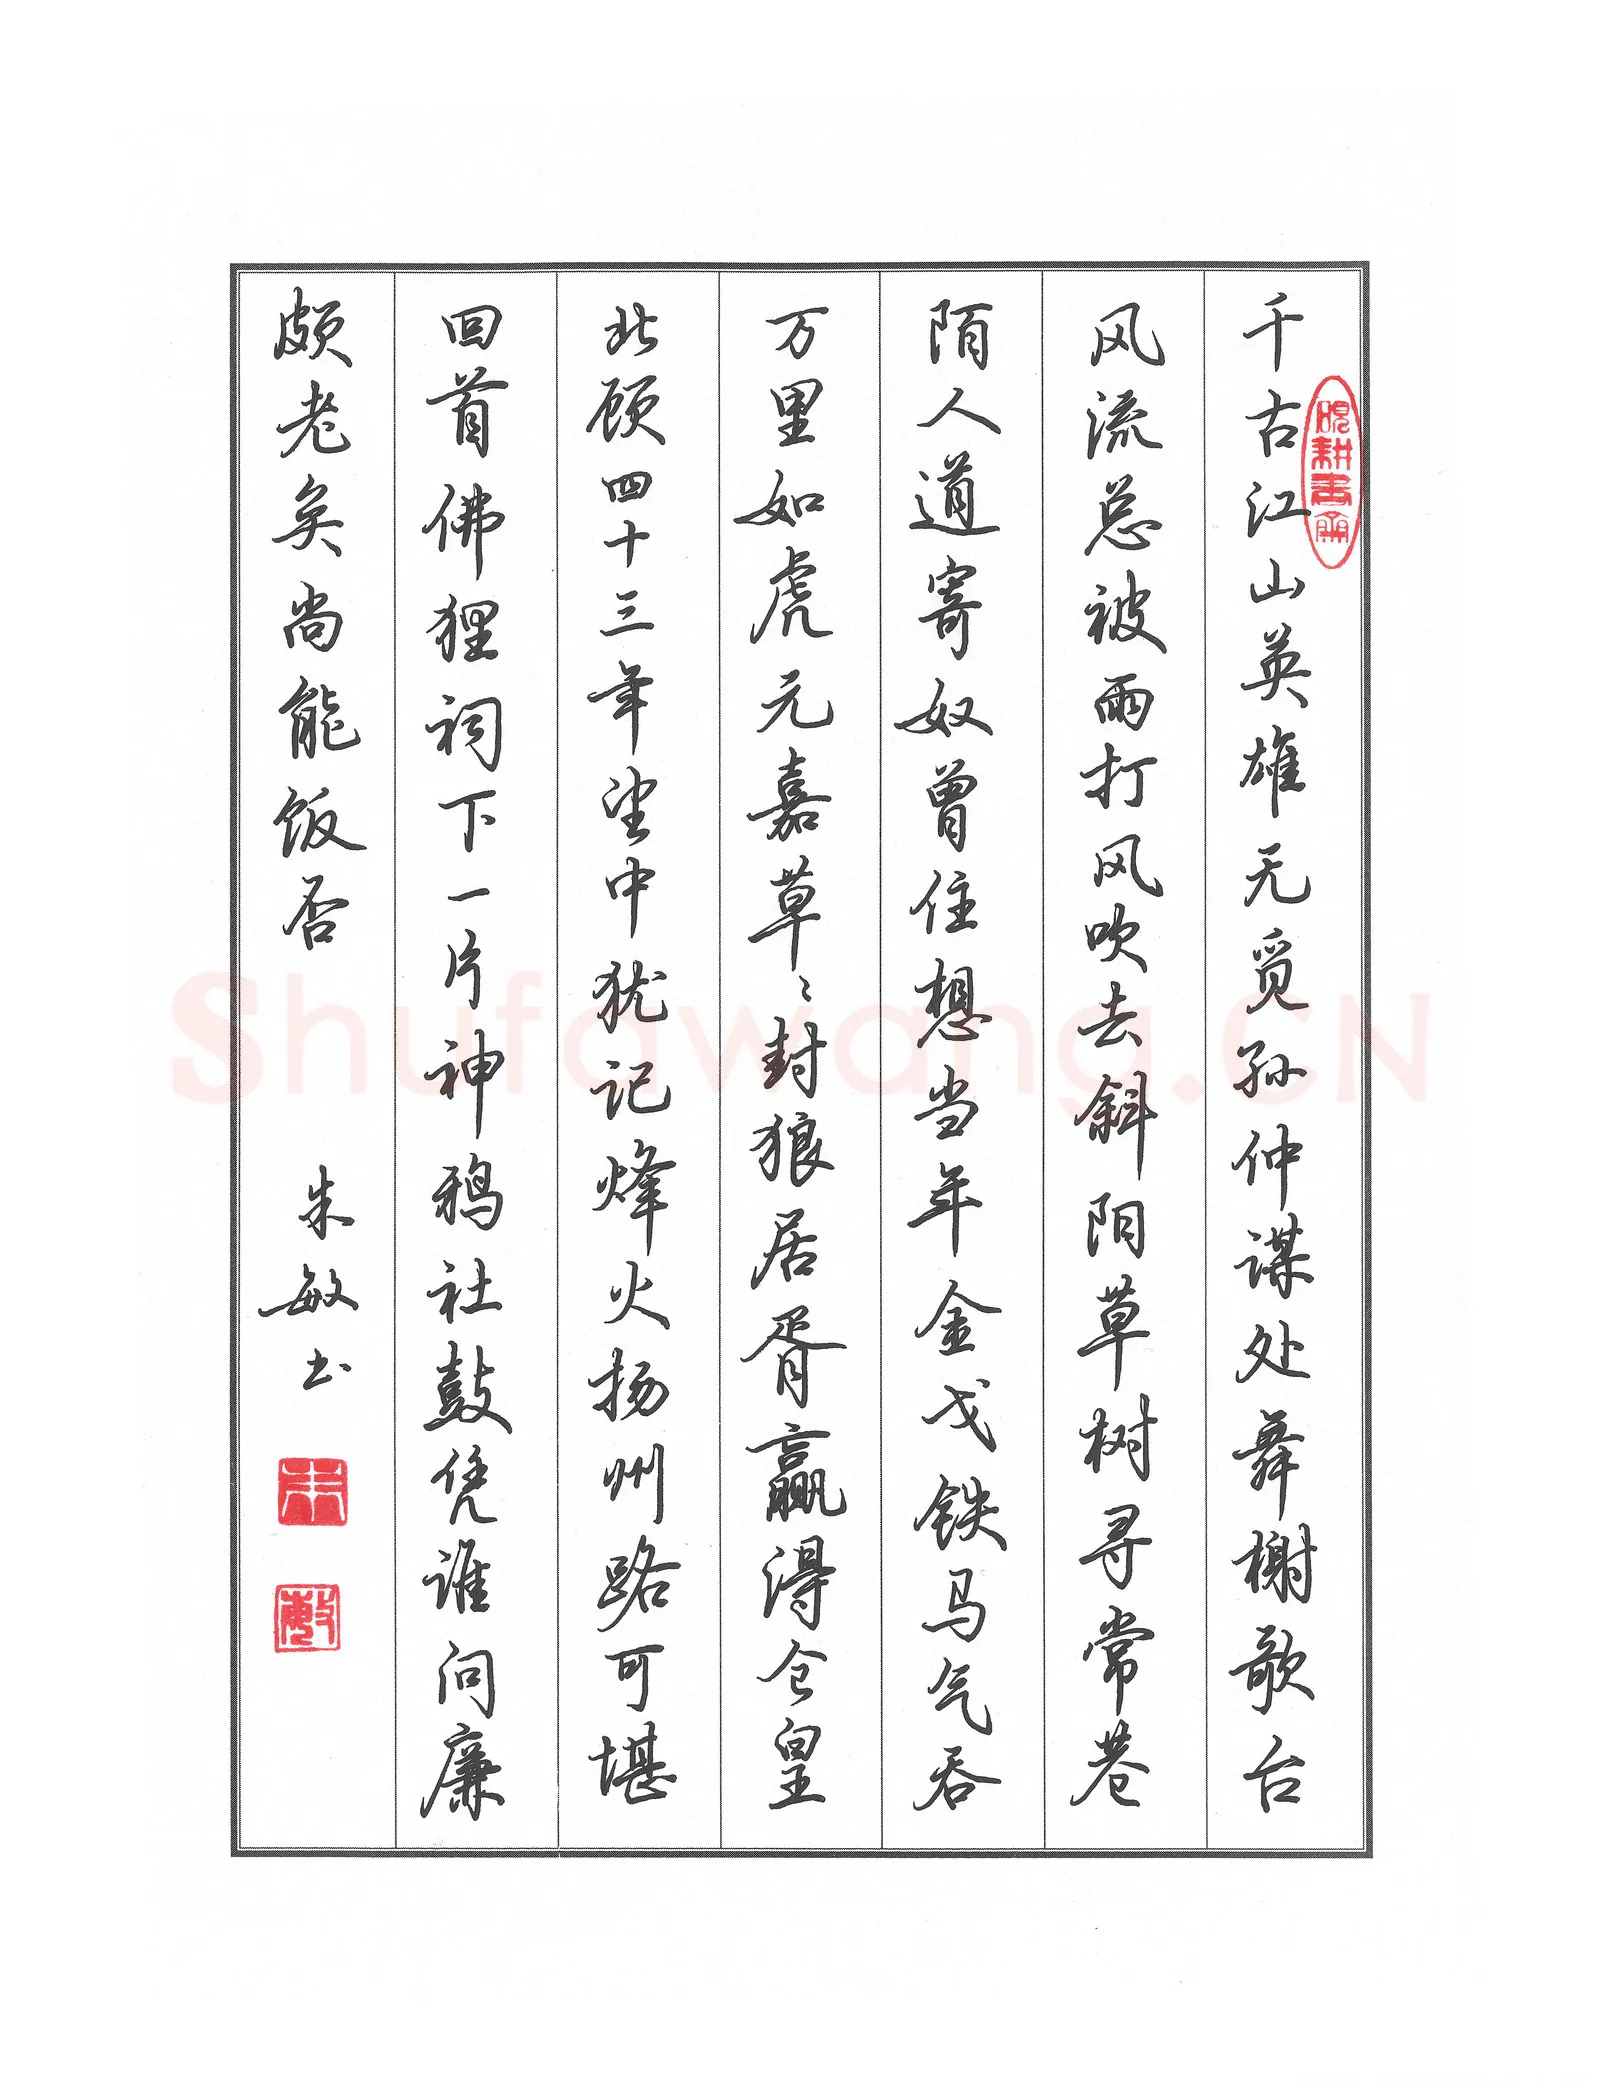 硯耕書齋
千古江山英雄无觅孙仲谋处舞榭歌台
风流总被雨打风吹去斜阳草树寻常巷
陌人道寄奴曾住想当年金戈铁马气吞
万里如虎元嘉草〻封狼居胥赢得仓皇
北顾四十三年望中犹记烽火扬州路可堪
回首佛狸祠下一片神鸦社鼓凭谁问廉
颇老矣尚能饭否
朱敏书
朱
敏
Shufawang.CN